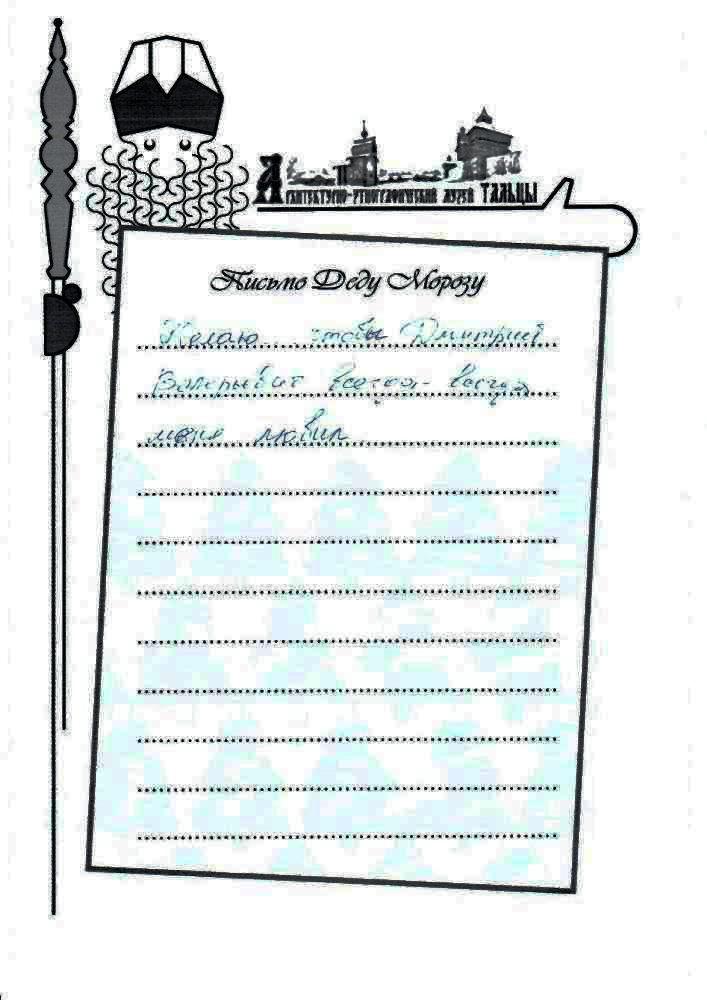 Архитектурно-этнографический музей ТАЛЬЦЫ
Письмо Деду Морозу
Желаю чтобы Дмитрий
Валерьевич всегда-всегда
меня любил